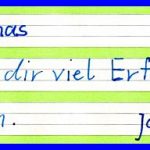 nas
dir viel Erf
n. Jo